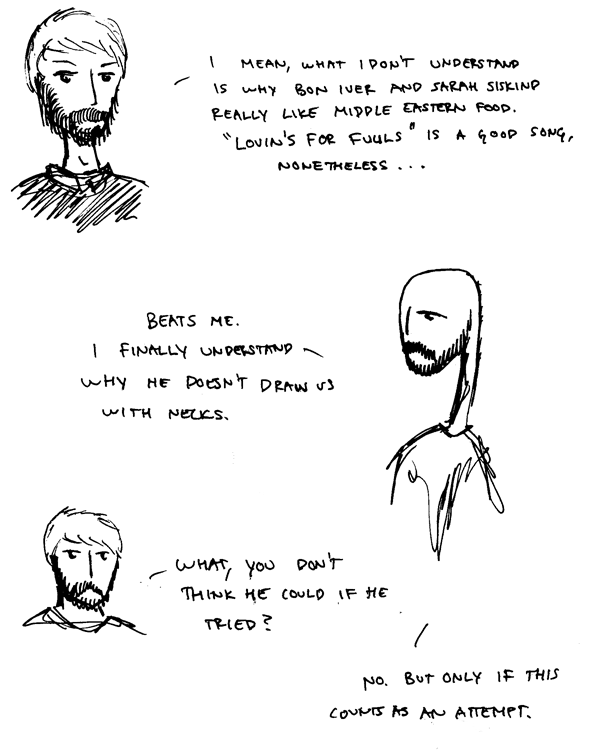 I MEAN, WHAT I DON'T UNDERSTAND
IS WHY BON IVER AND SARAH SISKIND
REALLY LIKE MIDDLE EASTERN FOOD.
"LOVIN'S FOR FUULS" IS A GOOD SONG,
NONETHELESS...
BEATS ME.
I FINALLY UNDERSTAND
WHY HE DOESN'T DRAW US
WITH NECKS.
WHAT, YOU DON'T
THINK HE COULD IF HE
TRIED?
NO. BUT ONLY IF THIS
COUNTS AS AN ATTEMPT.